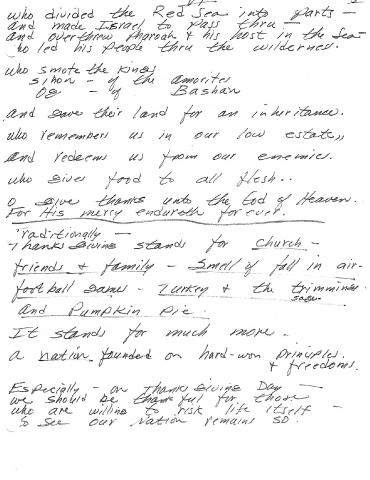 who divided the Red Sea into parts -
and made Israel to pass thru -
and overthrew Pharoah & his host in the Sea -
who led his people thru the wilderness.
who smote the kings
sihon - of the amorites
Og - of Bashan
and gave their land for an inheritance.
who remembers us in our low estate,,
and redeems us from our enemies.
who gives food to all flesh..
O give thanks unto the God of Heaven.
For His mercy endureth forever.
Traditionally -
Thanksgiving stands for Church -
friends & family - Smell of fall in air -
football games - Turkey & the trimmings
and Pumpkin pie
It stands for much more -
a nation founded on hard-won principles.
& freedoms.
Especially - on Thanksgiving Day -
we should be thankful for those
who are willing to risk life itself -
to see our Nation remains so.